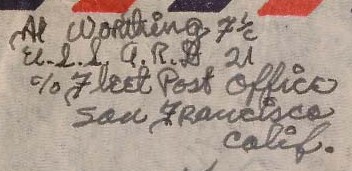 Al Worthing F 1/c
U.S.S. A.R.D 21
c/o Fleet Post Office
San Francisco
Calif.